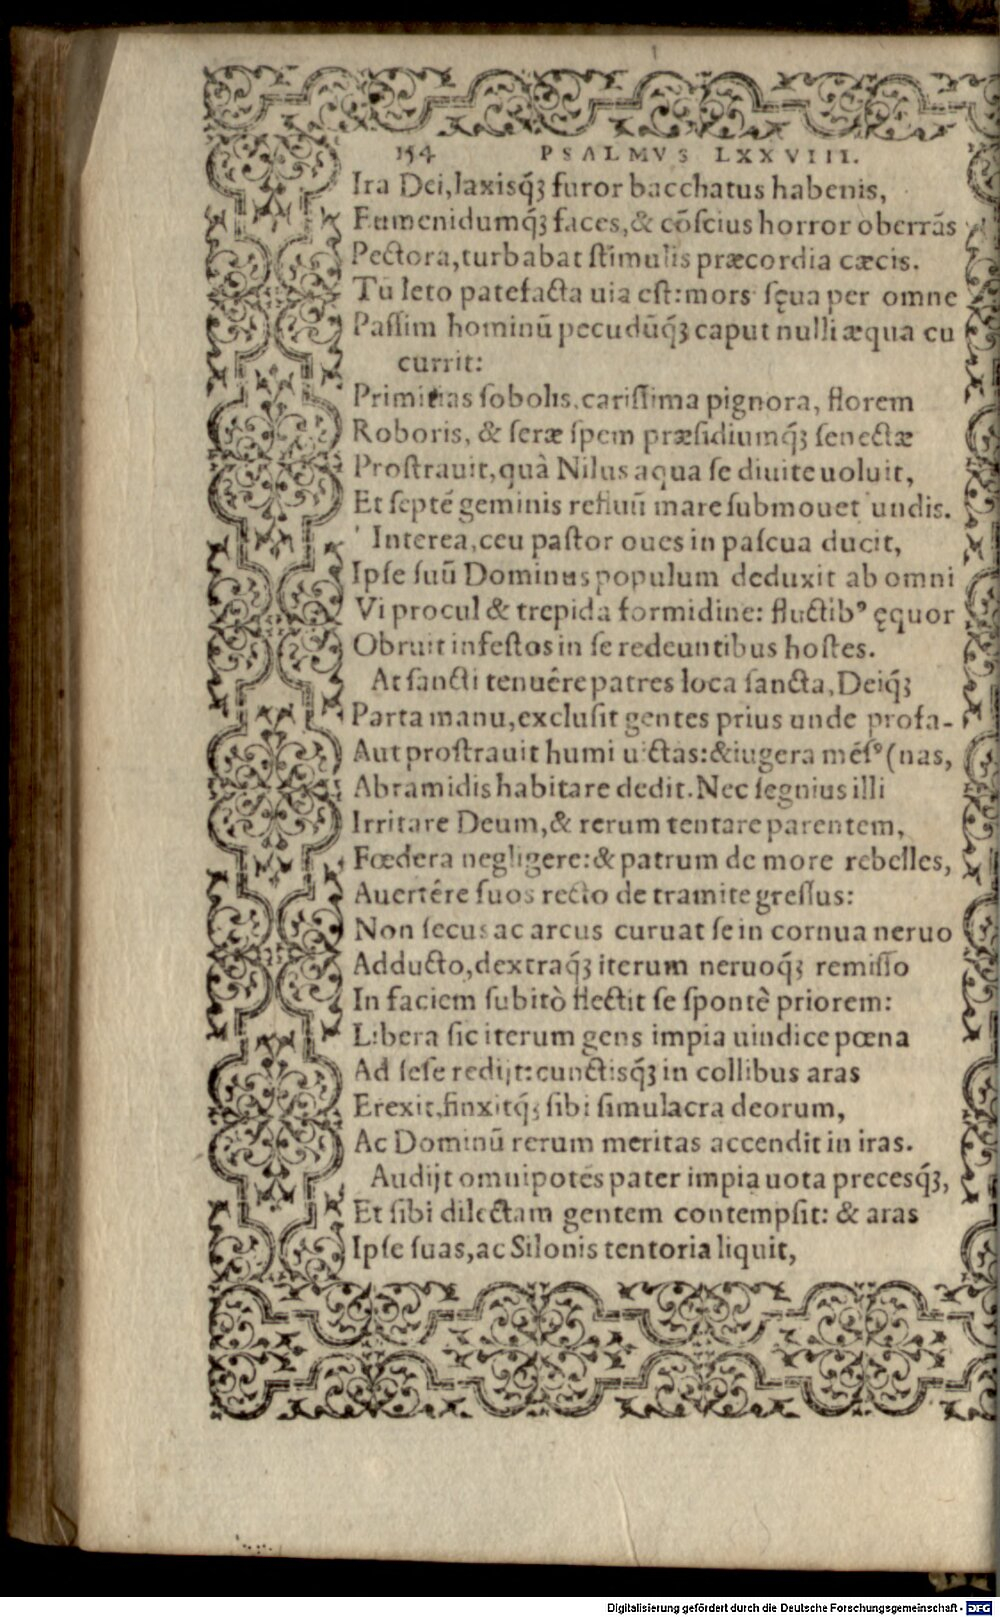 154 PSALMVS LXXVIII.
Ira Dei, laxisq́ꝫ furor bacchatus habenis,
Eumenidumq́ꝫ faces, & cõscius horror oberrãs
Pectora, turbabat stimulis præcordia cæcis.
Tũ leto patefacta uia est: mors sęua per omne
Passim hominũ pecudũq́ꝫ caput nulli æqua cu
currit:
Primitias sobolis, carissima pignora, florem
Roboris, & seræ spem præsidiumq́ꝫ senectæ
Prostrauit, quà Nilus aqua se diuite uoluit,
Et septẽ geminis refluũ mare submouet undis.
Interea, ceu pastor oues in pascua ducit,
Ipse suũ Dominus populum deduxit ab omni
Vi procul & trepida formidine: fluctibꝰ ęquor
Obruit infestos in se redeuntibus hostes.
At sancti tenuêre patres loca sancta, Deiq́ꝫ
Parta manu, exclusit gentes prius unde profa-
Aut prostrauit humi uictas: & iugera mẽsꝰ (nas,
Abramidis habitare dedit. Nec segnius illi
Irritare Deum, & rerum tentare parentem,
Fœdera negligere: & patrum de more rebelles,
Auertêre suos recto de tramite gressus:
Non secus ac arcus curuat se in cornua neruo
Adducto, dextraq́ꝫ iterum neruoq́ꝫ remisso
In faciem subitò flectit se spontè priorem:
Libera sic iterum gens impia uindice pœna
Ad sese redijt: cunctisq́ꝫ in collibus aras
Erexit, finxitq́ꝫ sibi simulacra deorum,
Ac Dominũ rerum meritas accendit in iras.
Audijt omnipotẽs pater impia uota precesq́ꝫ,
Et sibi dilectam gentem contempsit: & aras
Ipse suas, ac Silonis tentoria liquit,
Digitalisierung gefördert durch die Deutsche Forschungsgemeinschaft - DFG